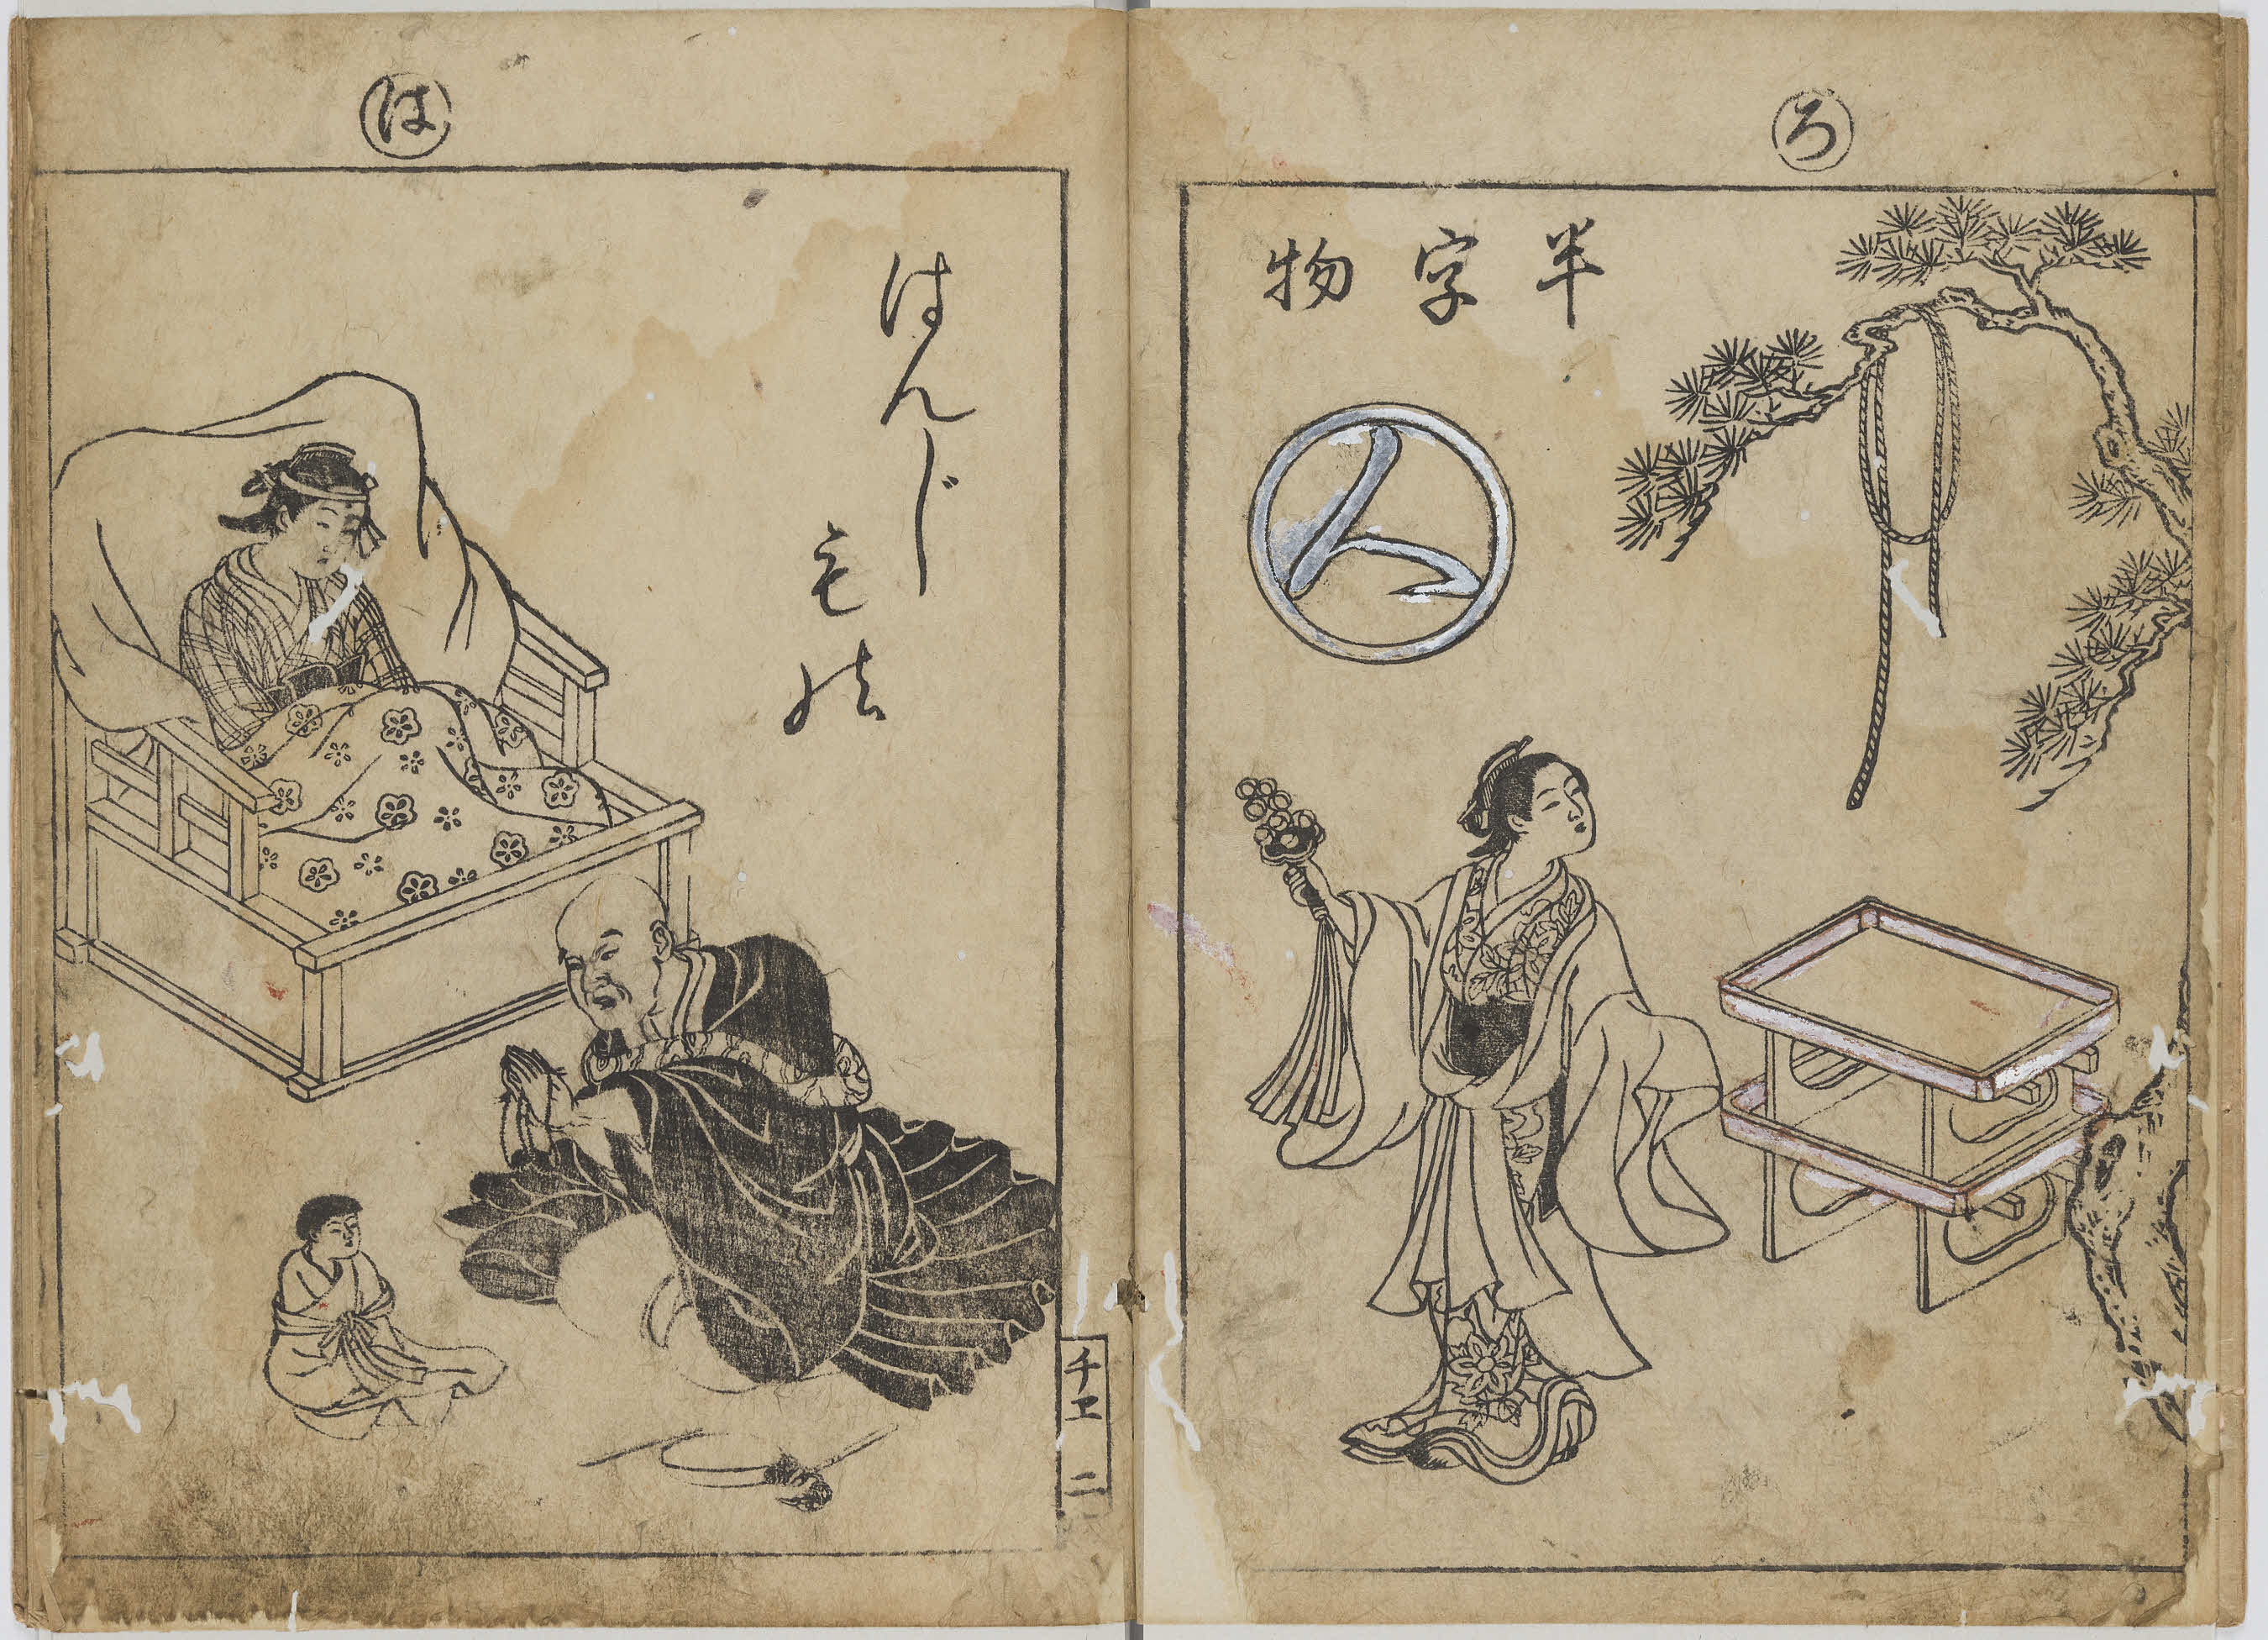 ろ
半字物
人
は
はんじ
もの
チヱ 二